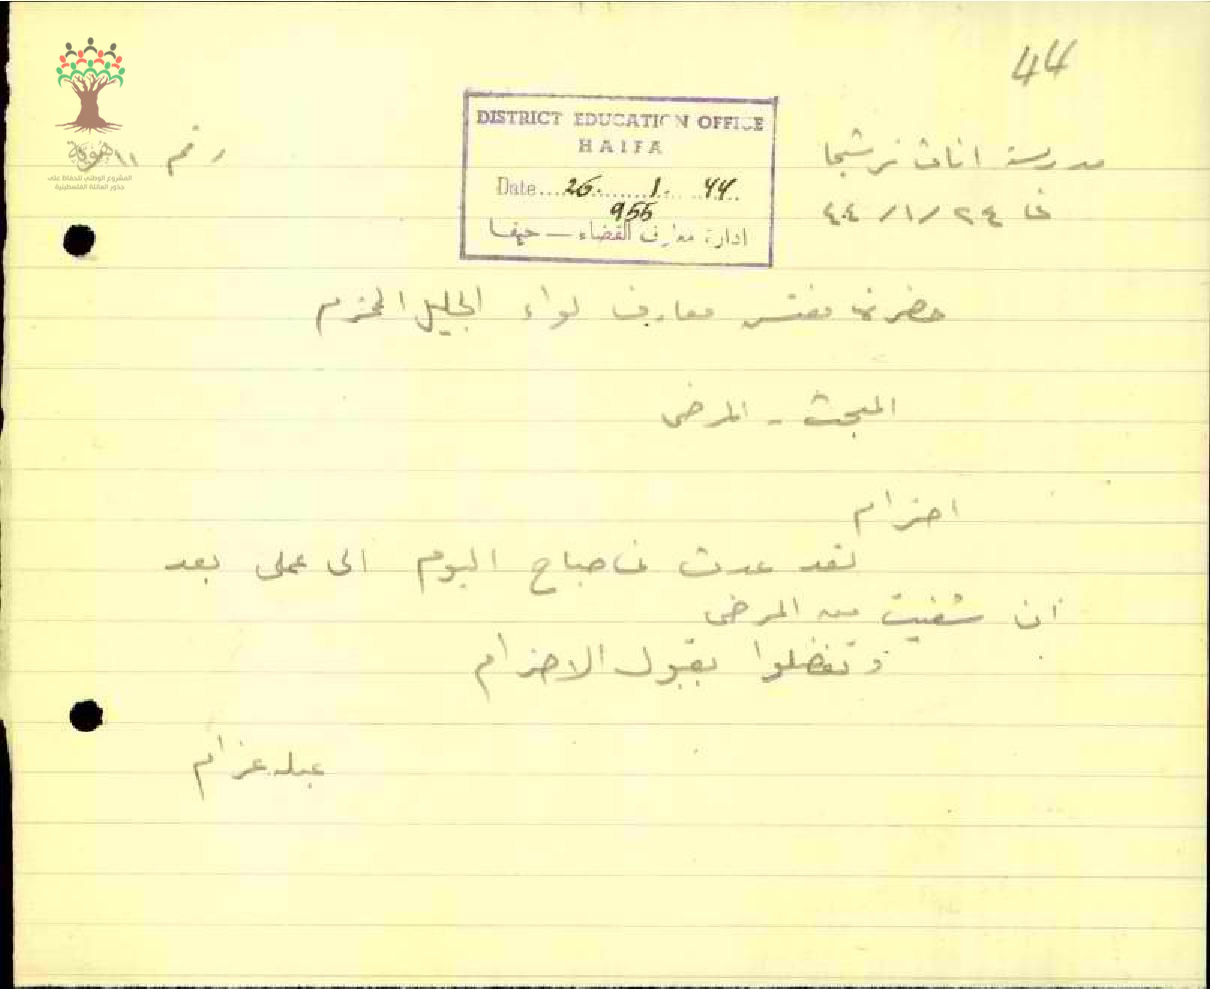 44
DISTRICT EDUCATION OFFICE
HAIFA
Date....26.......1. ..44..
955
ادارة معارف القضاء — حيفا
مدرسة اناث ترشيحا
رقم ١١
في ٢٤ /١/ ٤٤
هوية
المشروع الوطني للحفاظ على
جذور العائلة الفلسطينية
حضرة مفتش معارف لواء الجليل المحترم
المبحث - المرض
احترام
لقد عدت في صباح اليوم الى عملي بعد
ان شفيت من المرض
وتفضلوا بقبول الاحترام
عبله عزام